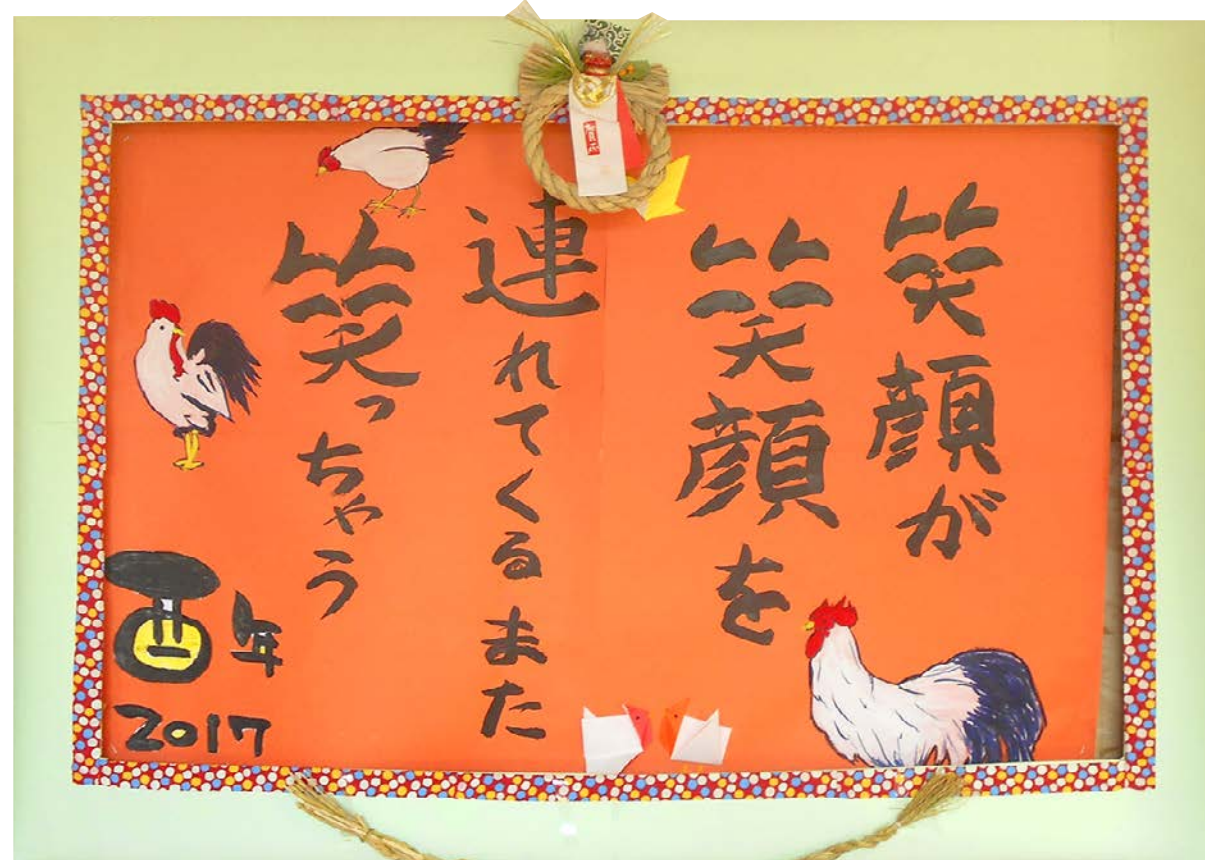 笑顔が
笑顔を
連れてくるまた
笑っちゃう
酉年
2017